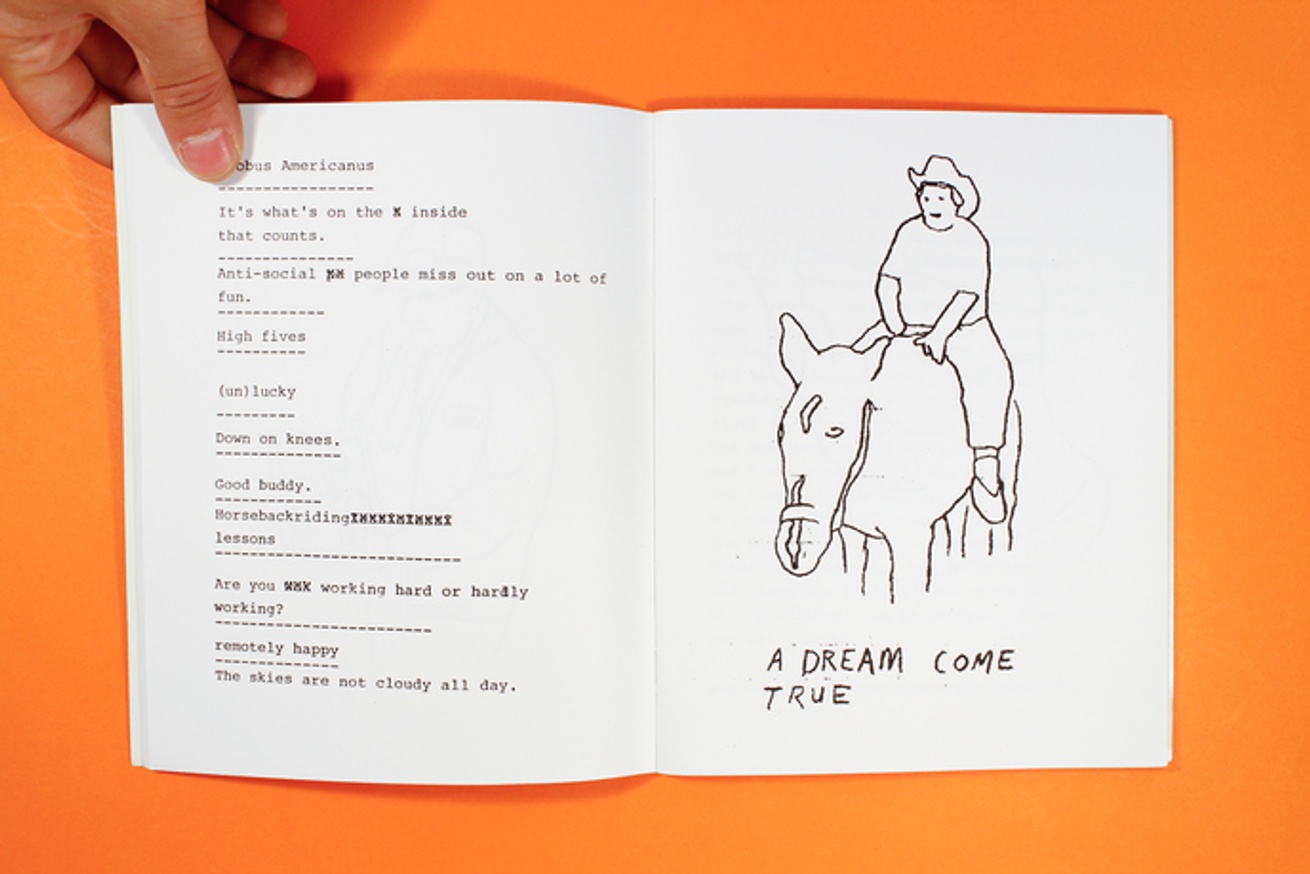 Americanus
-----------------
It's what's on the X inside
that counts.
---------------
Anti-social people miss out on a lot of
fun.
------------
High fives
----------
(un)lucky
---------
Down on knees.
--------------
Good buddy.
------------
Horsebackriding
lessons
---------------------------
Are you working hard or hardly
working?
------------------------
remotely happy
--------------
The skies are not cloudy all day.
A DREAM COME
TRUE